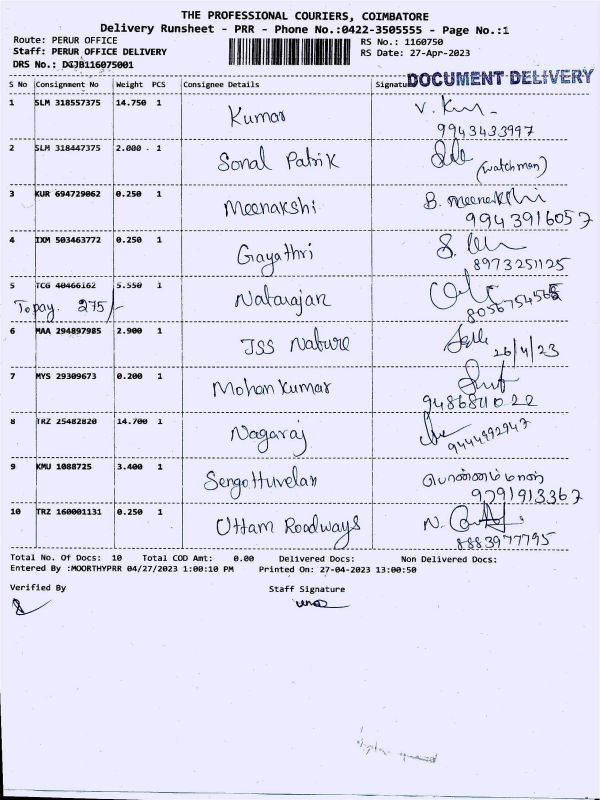 THE PROFESSIONAL COURIERS, COIMBATORE
Delivery Runsheet - PRR - Phone No.:0422-3505555 - Page No.:1
Route: PERUR OFFICE RS No.: 1160750
Staff: PERUR OFFICE DELIVERY RS Date: 27-Apr-2023
DRS No.: DGJB116075001
DOCUMENT DELIVERY
S No Consignment No Weight PCS Consignee Details Signature
1 SLM 318557375 14.750 1 Kumar V. Kum
9943433997
2 SLM 318447375 2.000 1 Sonal Patrik (watchman)
3 KUR 694729062 0.250 1 Meenakshi B. Meenakshi
9943916057
4 IXM 503463772 0.250 1 Gayathri
8973251125
5 TCG 40466162 5.550 1 Natarajan
Topay. 275/-
6 MAA 294897985 2.900 1 JSS Nature
26/4/23
7 MYS 29309673 0.200 1 Mohan Kumar
8 TRZ 25482820 14.700 1 Nagaraj
9444992947
9 KMU 1088725 3.400 1 Sengottuvelan
9791913367
10 TRZ 160001131 0.250 1 Uttam Roadways N.
8883977795
Total No. Of Docs: 10 Total COD Amt: 0.00 Delivered Docs: Non Delivered Docs:
Entered By :MOORTHYPRR 04/27/2023 1:00:10 PM Printed On: 27-04-2023 13:00:50
Verified By Staff Signature